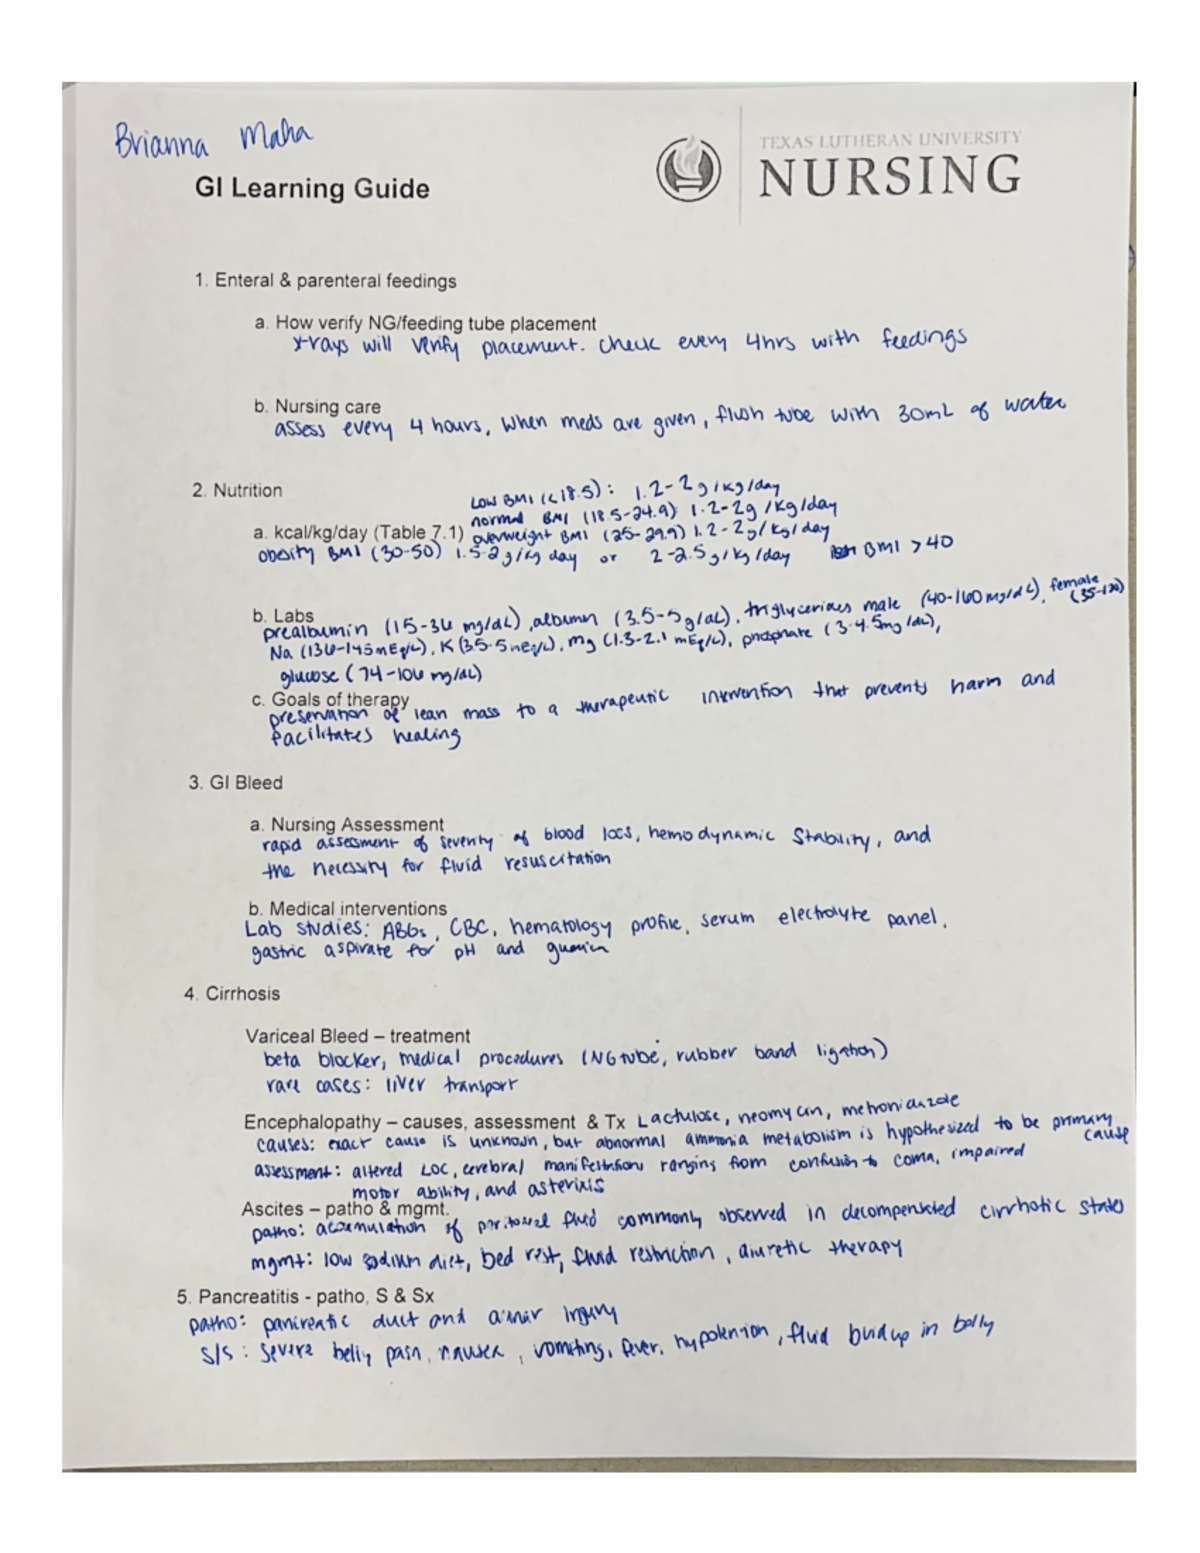 Brianna Maha
TEXAS LUTHERAN UNIVERSITY
NURSING
GI Learning Guide
1. Enteral & parenteral feedings
a. How verify NG/feeding tube placement
x-rays will verify placement. check every 4hrs with feedings
b. Nursing care
assess every 4 hours, when meds are given, flush tube with 30mL of water
2. Nutrition
Low BMI (<18.5): 1.2-2g/kg/day
normal BMI (18.5-24.9) 1.2-2g/kg/day
a. kcal/kg/day (Table 7.1) overweight BMI (25-29.9) 1.2-2g/kg/day
obesity BMI (30-50) 1.5-2g/kg day or 2-2.5g/kg/day BMI >40
b. Labs
prealbumin (15-36 mg/dL), albumin (3.5-5g/dL), triglycerides male (40-160mg/dL), female (35-120)
Na (136-145mEq/L), K (3.5-5mEq/L), mg (1.3-2.1 mEq/L), phosphate (3-4.5mg/dL),
glucose (74-106 mg/dL)
c. Goals of therapy
preservation of lean mass to a therapeutic intervention that prevents harm and
facilitates healing
3. GI Bleed
a. Nursing Assessment
rapid assessment of severity of blood loss, hemodynamic stability, and
the necessity for fluid resuscitation
b. Medical interventions
Lab studies: ABGs, CBC, hematology profile, serum electrolyte panel,
gastric aspirate for pH and
4. Cirrhosis
Variceal Bleed – treatment
beta blocker, medical procedures (NG tube, rubber band ligation)
rare cases: liver transport
Encephalopathy – causes, assessment & Tx Lactulose, neomycin, metronidazole
causes: exact cause is unknown, but abnormal ammonia metabolism is hypothesized to be primary cause
assessment: altered LOC, cerebral manifestations ranging from confusion to coma, impaired
motor ability, and asterixis
Ascites – patho & mgmt.
patho: accumulation of peritoneal fluid commonly observed in decompensated cirrhotic states
mgmt: low sodium diet, bed rest, fluid restriction, diuretic therapy
5. Pancreatitis - patho, S & Sx
patho: pancreatic duct and acinar injury
S/S: severe belly pain, nausea, vomiting, fever, hypotension, fluid buildup in belly